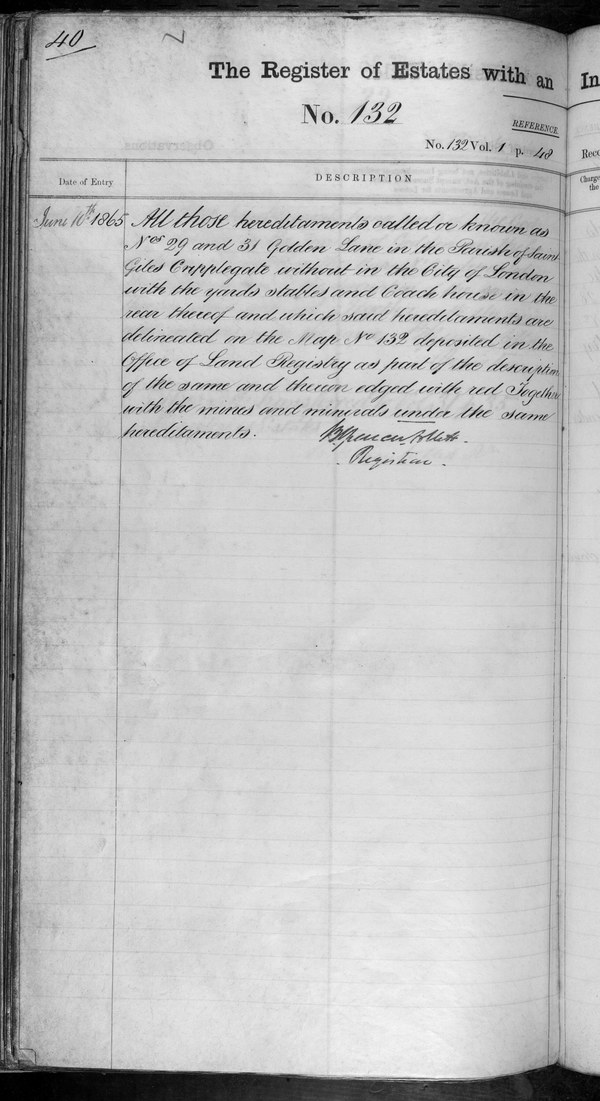 40
The Register of Estates with an
In
No. 132
REFERENCE.
No. 132 Vol. 1 p. 48
Date of Entry
DESCRIPTION
June 10th 1865
All those hereditaments called or known as
Nos 29 and 31 Golden Lane in the Parish of Saint
Giles Cripplegate without in the City of London
with the yards stables and Coach house in the
rear thereof and which said hereditaments are
delineated on the Map No 132 deposited in the
Office of Land Registry as part of the description
of the same and thereon edged with red Together
with the mines and minerals under the same
hereditaments.
Registrar.